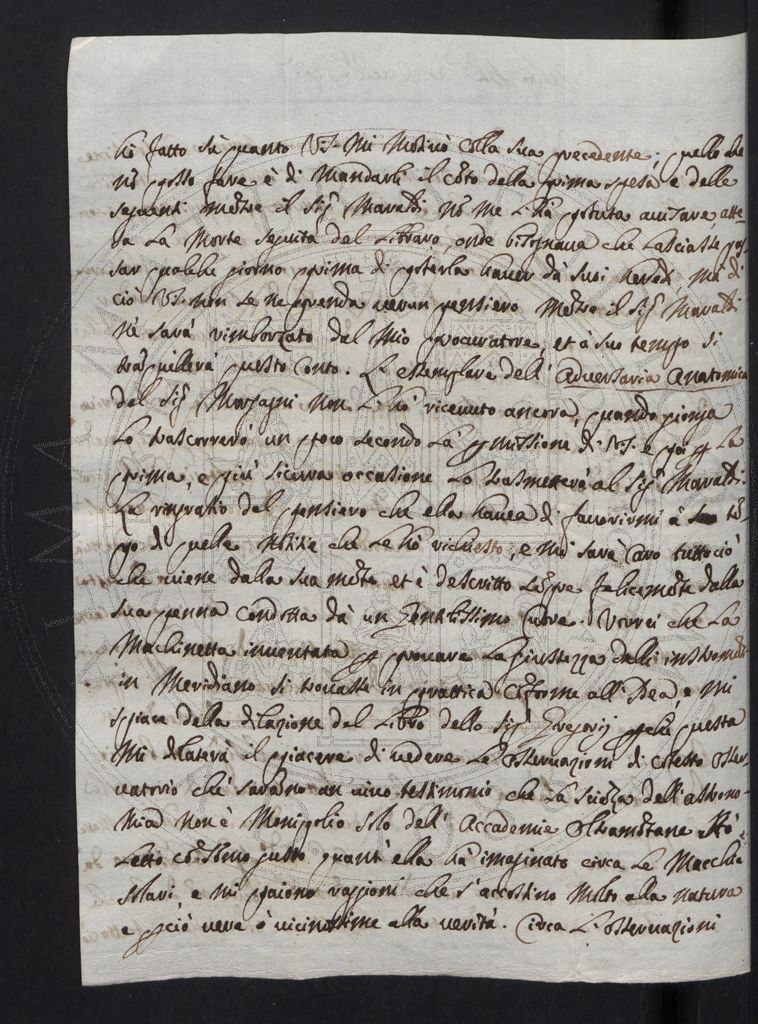 hò fatto sù quanto V.S. Mi Motivò colla sua precedente; quello che
nō posso fare è di Mandarli il cōto della prima spesa e delle
seguenti mētre il Sig.r Maraldi nō me l'hà potuta avisare, atte-
sa la Morte seguita del Libraro, onde bisognava che lasciasse pas-
sar qualche giorno prima di poterla haver dà suoi heredi, mà di
ciò V.S. non se ne prenda verun pensiero mētre il Sig.r Maraldi
ne sarà rimborzato dal Mio procuratore, et à suo tempo si
trāquillerà questo Conto. L'essemplare dell'Adversaria Anatomica
del Sig.r Morgagni non l'hò ricevuto ancora, quando gionga
lo trascorrerò un poco secondo la p̄missione di V.S. e poi p̄ la
prima, e più sicura occasione lo trasmetterò al Sig.r Maraldi.
La ringratio del pensiero che ella havea di favorirmi à tē-
po di quelle Notitie che le hò richiesto, e mi sarà Caro tuttociò
che viene dalla sua mēte et è descritto sēpre felicemēte dalla
sua penna condotta dà un gentilissimo Cuore. Vorrei che la
Macchinetta inventata p̄ provare la giustezza delli instromēti
in Meridiano si trovasse in prattica cōforme all'Idea, e mi
spiace della dilazione del libro dello Sig.r Gregorij p̄che questa
Mi dilaterà il piacere di vedere le osservazioni di cotesto osser-
vatorio che sarāno un vivo testimonio che la sciēza dell'astrono-
mia non è Monipolio solo dell'Accademie Oltramōtane. Hò
letto cō sōmo gusto quanto ella hà imaginato circa le Macchie
solari, e mi paiono raggioni che s'accostino molto alla natura
e p̄ciò vere ò vicinissime alla verità. Circa l'osservazioni